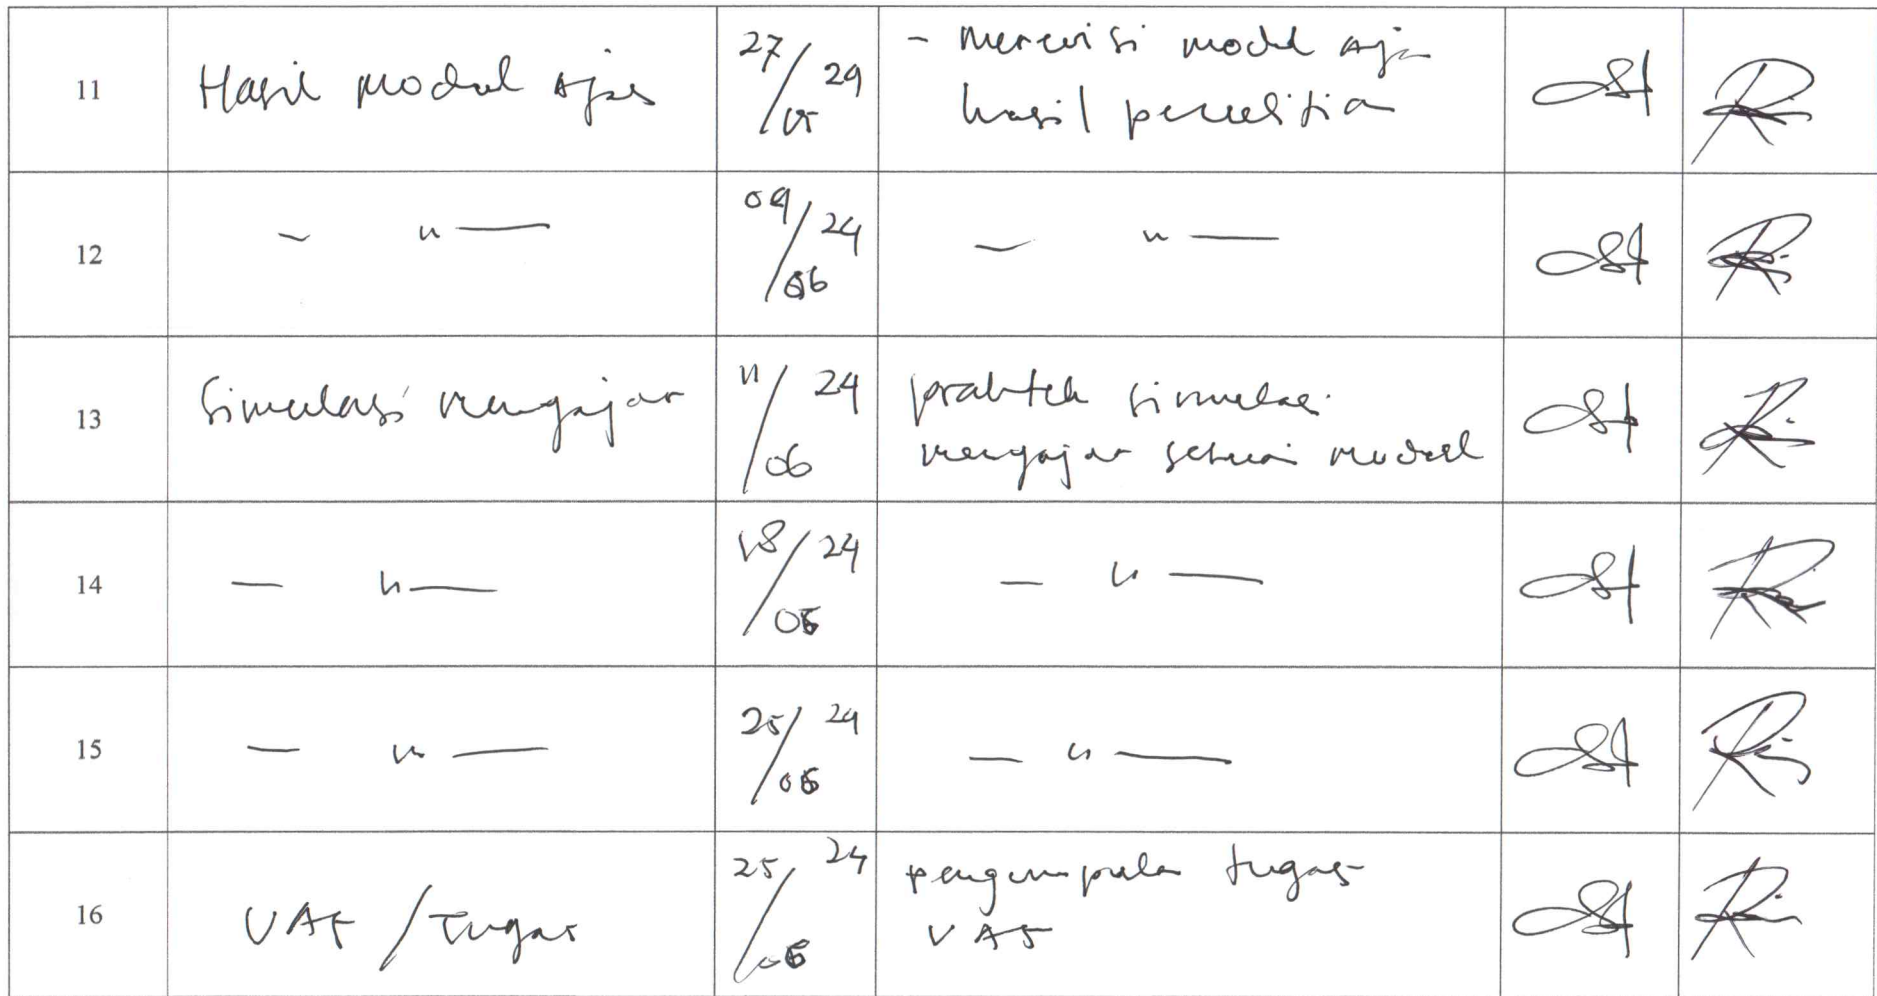 11
Hasil modul ajar
27/05 24
- merevisi modul ajar
hasil penelitian
12
— " —
04/06 24
— " —
13
Simulasi mengajar
11/06 24
praktek simulasi
mengajar sesuai modul
14
— " —
18/06 24
— " —
15
— " —
25/06 24
— " —
16
UAS / Tugas
25/06 24
pengumpulan tugas
UAS